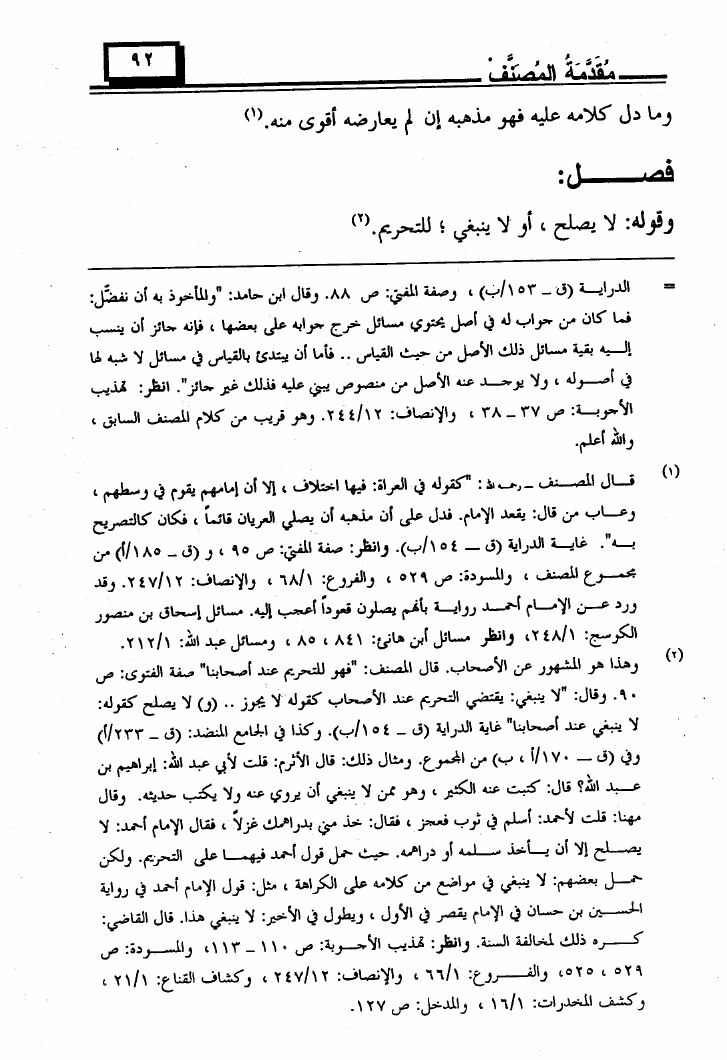 مُقَدَّمَةُ المُصَنَّفْ
٩٢
وما دل كلامه عليه فهو مذهبه إن لم يعارضه أقوى منه.(١)
فصـــــل:
وقوله: لا يصلح ، أو لا ينبغي ؛ للتحريم.(٢)
= الدرايـة (ق ــ ١٥٣/ب) ، وصفة المفتي: ص ٨٨. وقال ابن حامد: "والمأخوذ به أن نفضَّل:
فما كان من جواب له في أصل يحتوي مسائل خرج جوابه على بعضها ، فإنه جائز أن ينسب
إلـيه بقية مسائل ذلك الأصل من حيث القياس .. فأما أن يبتدئ بالقياس في مسائل لا شبه لها
في أصـوله ، ولا يوجـد عنه الأصل من منصوص يبني عليه فذلك غير جائز". انظر: تهذيب
الأجوبـة: ص ٣٧ ــ ٣٨ ، والإنصاف: ٢٤٤/١٢. وهو قريب من كلام المصنف السابق ،
والله أعلم.
(١) قـال المصـنف ــ رحمه الله : "كقوله في العراة: فيها اختلاف ، إلا أن إمامهم يقوم في وسطهم ،
وعـاب من قال: يقعد الإمام. فدل على أن مذهبه أن يصلي العريان قائماً ، فكان كالتصريح
بـه". غايـة الدراية (ق ــ ١٥٤/ب). وانظر: صفة المفتي: ص ٩٥ ، و (ق ــ ١٨٥/أ) من
مجمـوع المصنف ، والمسودة: ص ٥٢٩ ، والفروع: ٦٨/١ ، والإنصاف: ٢٤٧/١٢. وقد
ورد عـن الإمـام أحمـد روايـة بأنهم يصلون قعوداً أعجب إليه. مسائل إسحاق بن منصور
الكوسج: ٢٤٨/١، وانظر مسائل أبن هانئ: ٨٤١ ، ٨٥ ، ومسائل عبد الله: ٢١٢/١.
(٢) وهذا هو المشهور عن الأصحاب. قال المصنف: "فهو للتحريم عند أصحابنا" صفة الفتوى: ص
٩٠. وقال: "لا ينبغي: يقتضي التحريم عند الأصحاب كقوله لا يجوز .. (و) لا يصلح كقوله:
لا ينبغي عند أصحابنا" غاية الدراية (ق ــ ١٥٤/ب). وكذا في الجامع المنضد: (ق ــ ٢٣٣/أ)
وفي (ق ــ ١٧٠/أ ، ب) من المجموع. ومثال ذلك: قال الأثرم: قلت لأبي عبد الله: إبراهيم بن
عـبد الله؟ قال: كتبت عنه الكثير ، وهو ممن لا ينبغي أن يروي عنه ولا يكتب حديثه. وقال
مهنا: قلت لأحمد: أسلم في ثوب فعجز ، فقال: خذ مني بدراهمك غزلاً ، فقال الإمام أحمد: لا
يصـلح إلا أن يـأخذ سـلمه أو دراهمه. حيث حمل قول أحمد فيهمـا على التحريم. ولكن
حمـل بعضهم: لا ينبغي في مواضع من كلامه على الكراهة ، مثل: قول الإمام أحمد في رواية
الحسـين بن حسان في الإمام يقصر في الأول ، ويطول في الأخير: لا ينبغي هذا. قال القاضي:
كـره ذلك لمخالفة السنة. وانظر: تهذيب الأجوبة: ص ١١٠ ــ ١١٣، والمسـودة: ص
٥٢٩ ، ٥٢٥، والفـروع: ٦٦/١ ، والإنصاف: ٢٤٧/١٢ ، وكشاف القناع: ٢١/١ ،
وكشف المخدرات: ١٦/١ ، والمدخل: ص ١٢٧.